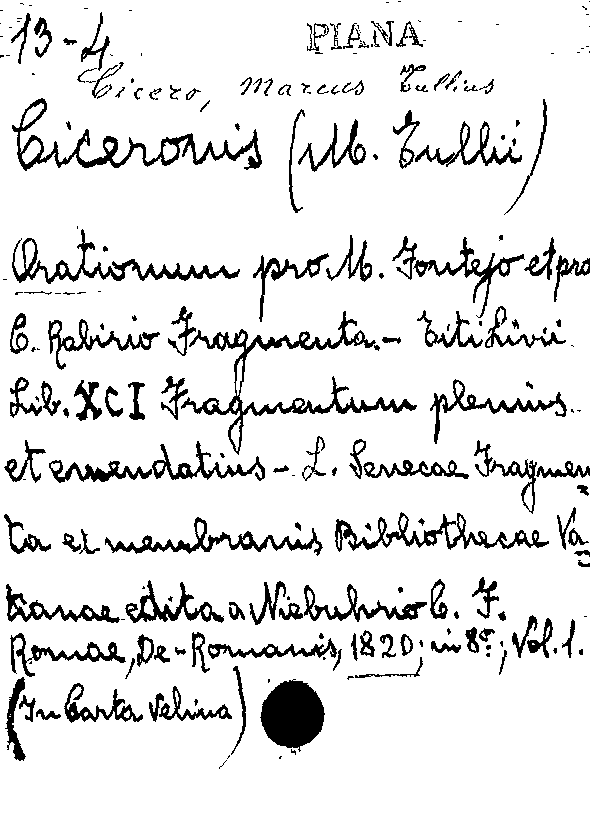 13-4 PIANA
Cicero, Marcus Tullius
Ciceronis (M. Tullii)
Orationum pro M. Fontejo et pro
C. Rabirio Fragmenta.- Titi Livii
Lib. XCI Fragmentum plenius
et emendatius - L. Senecae Fragmen
ta ex membranis Bibliothecae Va
ticanae edita a Niebuhrio C. F.
Romae, De-Romanis, 1820; in 8º; Vol. 1.
(In Carta Velina)